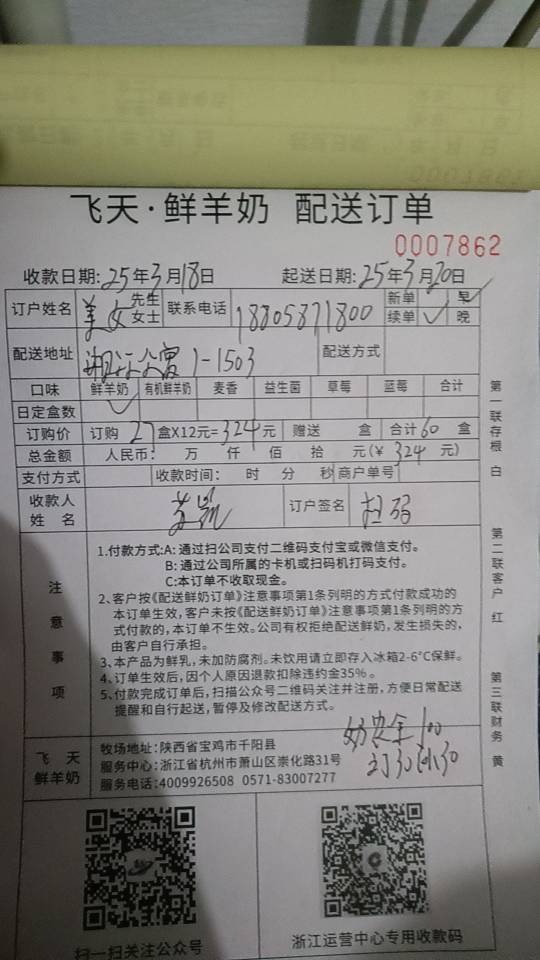 飞天·鲜羊奶 配送订单
0007862
收款日期:25年3月18日 起送日期:25年3月20日
订户姓名 美女 先生 女士 联系电话 18805871800 新单 早✓ 续单✓ 晚
配送地址 湘江公寓 1-1503 配送方式
口味 鲜羊奶✓ 有机鲜羊奶 麦香 益生菌 草莓 蓝莓 合计
日定盒数
订购价 订购 27 盒X12元=324元 赠送 盒 合计60盒
总金额 人民币: 万 仟 佰 拾 元(¥ 324 元)
支付方式 收款时间: 时 分 秒 商户单号
收款人姓名 苏凯 订户签名 扫码
注意事项
1.付款方式:A:通过扫公司支付二维码支付宝或微信支付。
B:通过公司所属的卡机或扫码机打码支付。
C:本订单不收取现金。
2、客户按《配送鲜奶订单》注意事项第1条列明的方式付款成功的
本订单生效,客户未按《配送鲜奶订单》注意事项第1条列明的方
式付款的,本订单不生效。公司有权拒绝配送鲜奶,发生损失的,
由客户自行承担。
3、本产品为鲜乳,未加防腐剂。未饮用请立即存入冰箱2-6°C保鲜。
4、订单生效后,因个人原因退款扣除违约金35%。
5、付款完成订单后,扫描公众号二维码关注并注册,方便日常配送
提醒和自行起送,暂停及修改配送方式。
奶卖金100
订30送30
飞天鲜羊奶
牧场地址:陕西省宝鸡市千阳县
服务中心:浙江省杭州市萧山区崇化路31号
服务电话:4009926508 0571-83007277
扫一扫关注公众号 浙江运营中心专用收款码
第一联存根 白
第二联客户 红
第三联财务 黄